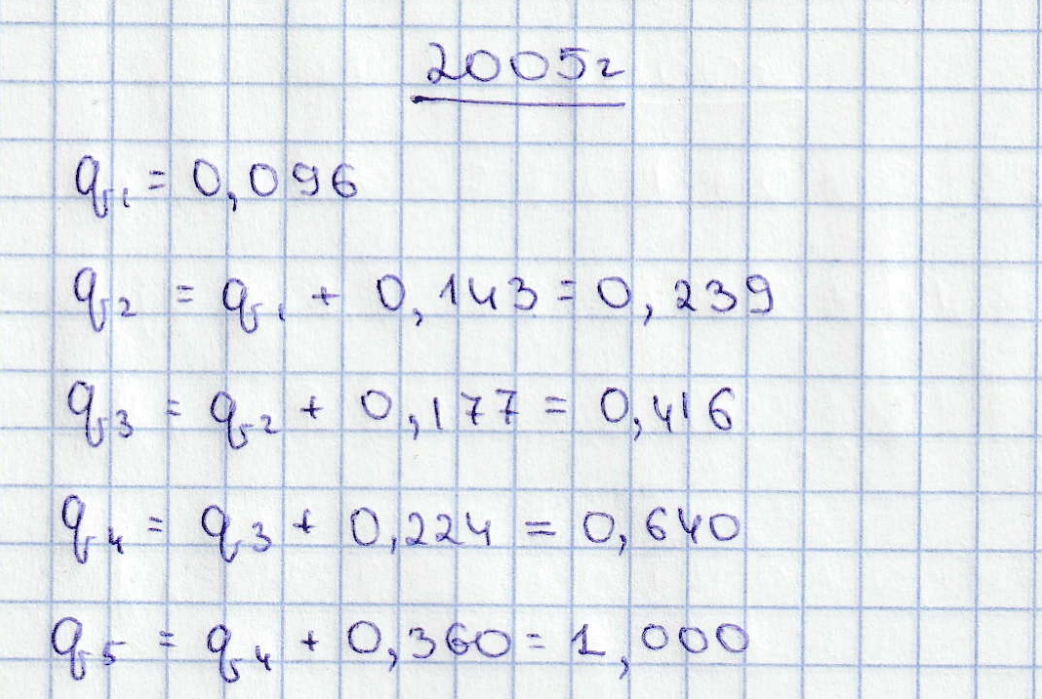 2005г
q₁ = 0,096
q₂ = q₁ + 0,143 = 0,239
q₃ = q₂ + 0,177 = 0,416
q₄ = q₃ + 0,224 = 0,640
q₅ = q₄ + 0,360 = 1,000